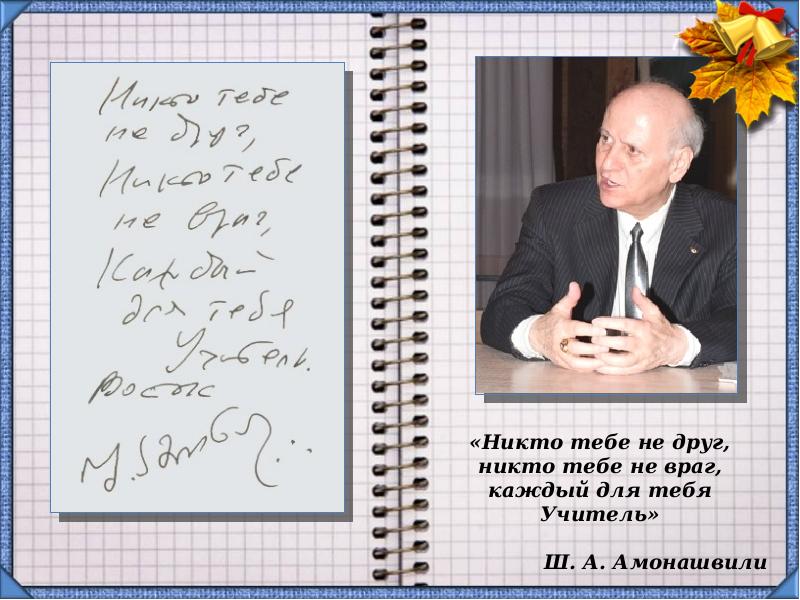 Никто тебе
не друг,
Никто тебе
не враг,
Каждый
для тебя
Учитель.
«Никто тебе не друг,
никто тебе не враг,
каждый для тебя
Учитель»
Ш. А. Амонашвили